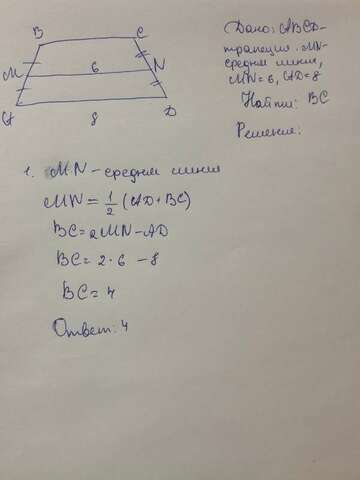 B C
M 6 N
A 8 D
Дано: ABCD-
трапеция. MN-
средняя линия,
MN=6, AD=8
Найти: BC
Решение:
1. MN-средняя линия
MN=1/2(AD+BC)
BC=2MN-AD
BC=2·6-8
BC=4
Ответ: 4